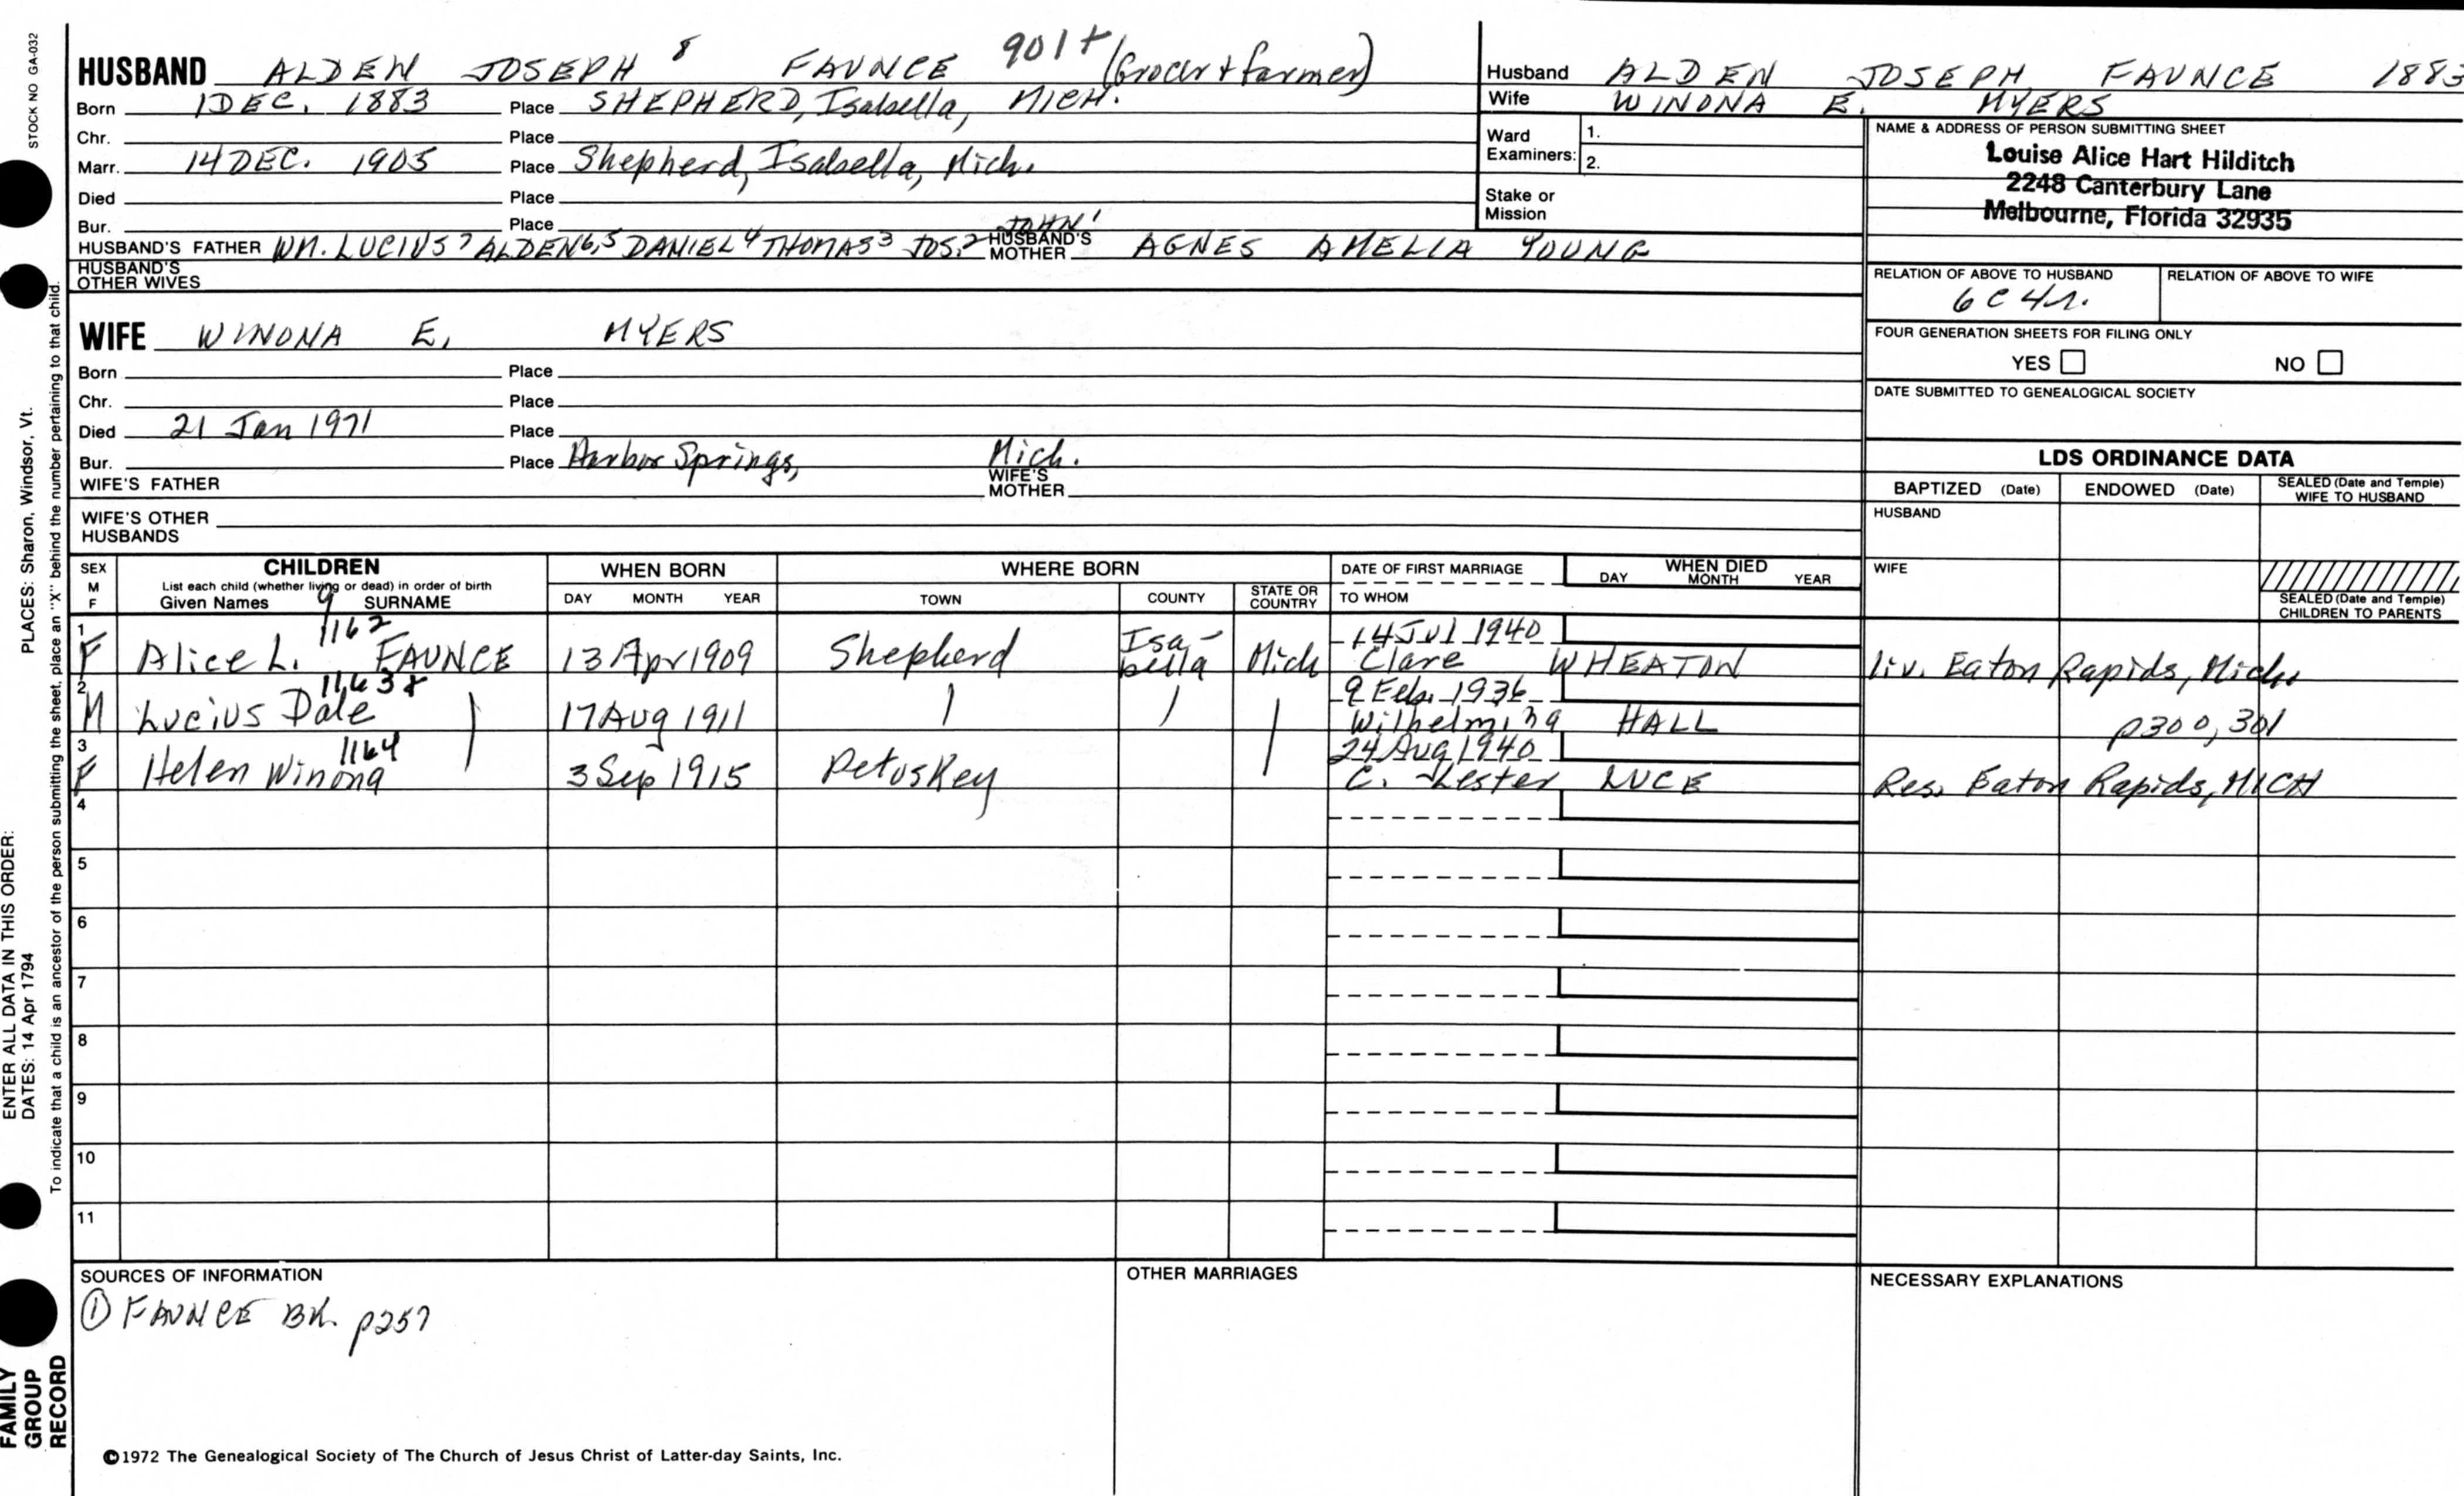 STOCK NO GA-032
PLACES: Sharon, Windsor, Vt.
ENTER ALL DATA IN THIS ORDER:
DATES: 14 Apr 1794
To indicate that a child is an ancestor of the person submitting the sheet, place an "X" behind the number pertaining to that child.
FAMILY
GROUP
RECORD
HUSBAND ALDEN JOSEPH 8 FAUNCE 901+ (Grocer & farmer)
Born 1 DEC. 1883 Place SHEPHERD, Isabella, MICH.
Chr. Place
Marr. 14 DEC. 1905 Place Shepherd, Isabella, Mich.
Died Place
Bur. Place
JOHN 1
HUSBAND'S FATHER WM. LUCIUS 7 ALDEN 6,5 DANIEL 4 THOMAS 3 JOS. 2 HUSBAND'S MOTHER AGNES AMELIA YOUNG
HUSBAND'S OTHER WIVES
WIFE WINONA E. MYERS
Born Place
Chr. Place
Died 21 Jan 1971 Place
Bur. Place Harbor Springs, Mich.
WIFE'S FATHER WIFE'S MOTHER
WIFE'S OTHER HUSBANDS
Husband ALDEN JOSEPH FAUNCE 1883
Wife WINONA E. MYERS
Ward Examiners: 1.
2.
Stake or Mission
NAME & ADDRESS OF PERSON SUBMITTING SHEET
Louise Alice Hart Hilditch
2248 Canterbury Lane
Melbourne, Florida 32935
RELATION OF ABOVE TO HUSBAND RELATION OF ABOVE TO WIFE
6 C 4 r.
FOUR GENERATION SHEETS FOR FILING ONLY
YES NO
DATE SUBMITTED TO GENEALOGICAL SOCIETY
LDS ORDINANCE DATA
BAPTIZED (Date) ENDOWED (Date) SEALED (Date and Temple) WIFE TO HUSBAND
HUSBAND
WIFE
SEALED (Date and Temple) CHILDREN TO PARENTS
SEX M F
CHILDREN
List each child (whether living or dead) in order of birth
Given Names 9 SURNAME
WHEN BORN
DAY MONTH YEAR
WHERE BORN
TOWN COUNTY STATE OR COUNTRY
DATE OF FIRST MARRIAGE
TO WHOM
WHEN DIED
DAY MONTH YEAR
1 F Alice L. 1162 FAUNCE 13 Apr 1909 Shepherd Isa-bella Mich 14 Jul 1940 Clare WHEATON liv. Eaton Rapids, Mich.
2 M Lucius Dale 1163+ 17 Aug 1911 9 Feb. 1936 Wilhelmina HALL p300, 301
3 F Helen Winona 1164 3 Sep 1915 Petoskey 24 Aug 1940 C. Lester LUCE Res. Eaton Rapids, MICH
4
5
6
7
8
9
10
11
SOURCES OF INFORMATION
① FAUNCE BK. p257
OTHER MARRIAGES
NECESSARY EXPLANATIONS
©1972 The Genealogical Society of The Church of Jesus Christ of Latter-day Saints, Inc.